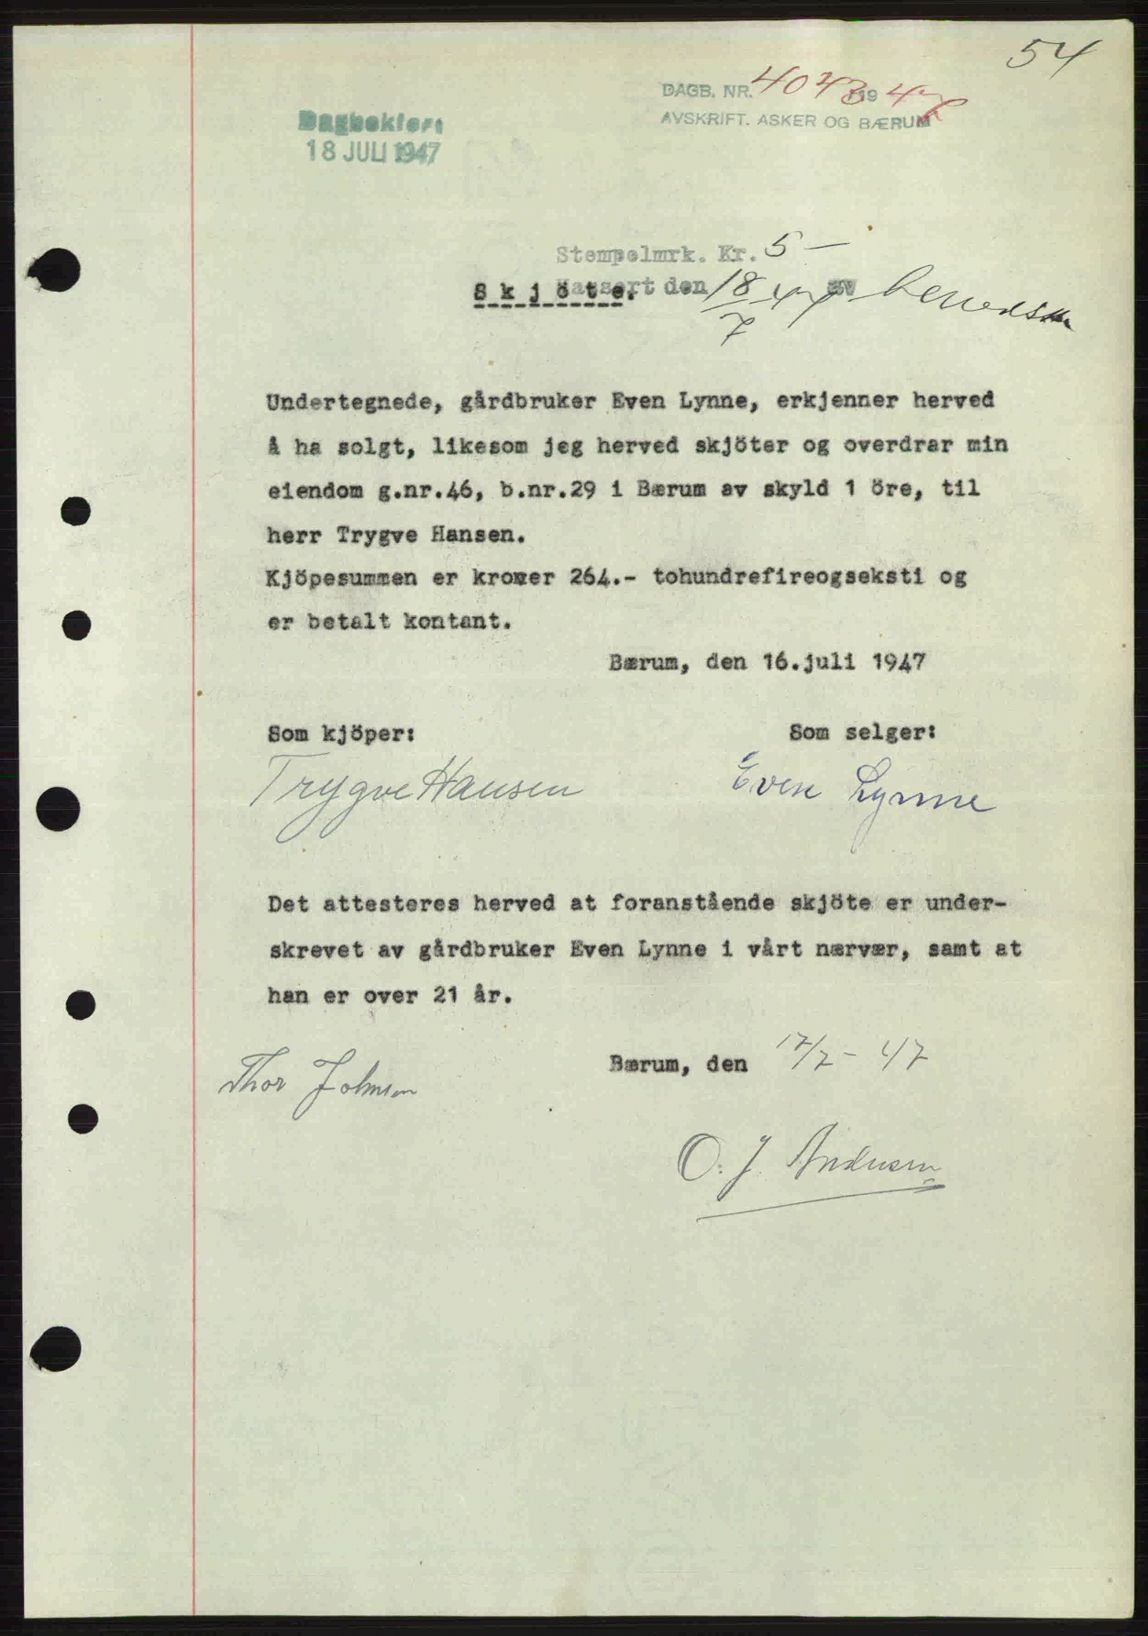 54
DAGB. NR. 4043 1947
AVSKRIFT. ASKER OG BÆRUM
Dagbokført
18 JULI 1947
Stempelmrk. Kr. 5 -
Kassert den 18/7 47 av
Skjöte.
Undertegnede, gårdbruker Even Lynne, erkjenner herved
å ha solgt, likesom jeg herved skjöter og overdrar min
eiendom g.nr.46, b.nr.29 i Bærum av skyld 1 öre, til
herr Trygve Hansen.
Kjöpesummen er kroner 264.- tohundrefireogseksti og
er betalt kontant.
Bærum, den 16.juli 1947
Som kjöper: Som selger:
Trygve Hansen Even Lynne
Det attesteres herved at foranstående skjöte er under-
skrevet av gårdbruker Even Lynne i vårt nærvær, samt at
han er over 21 år.
Bærum, den 17/7 - 47
Thor Johnsen
O. J. Andersen